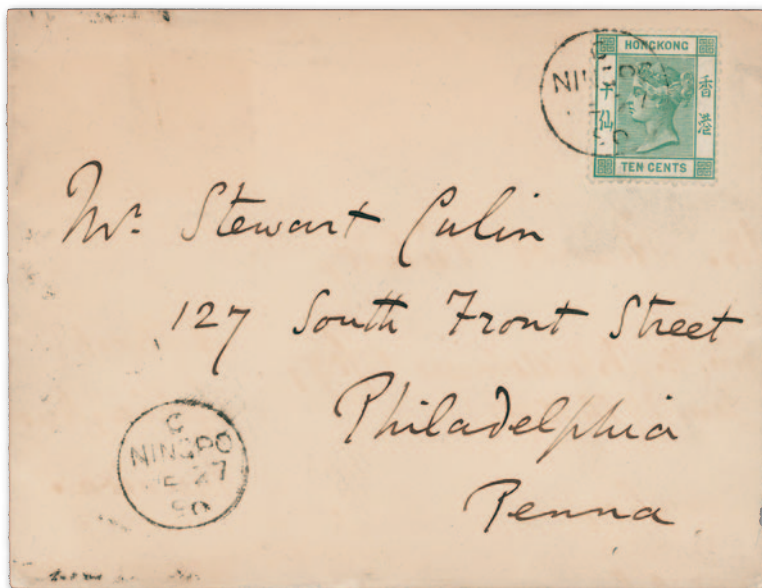 HONGKONG
香港
TEN CENTS
C
NINGPO
Mr. Stewart Culin
127 South Front Street
Philadelphia
Penna
C
NINGPO
27
90